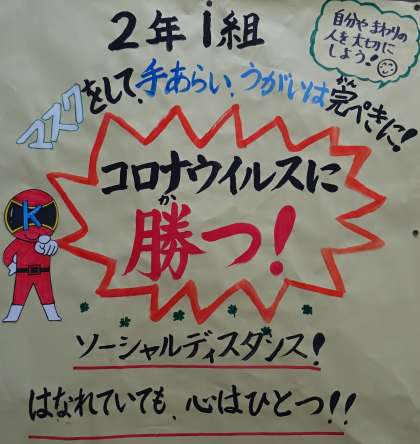 2年i組
自分や まわりの
人を大切に
しよう!
マスクをして、手あらい、うがいは完ぺきに!
かん
コロナウイルスに
か
勝つ!
K
ソーシャルディスタンス!
はなれていても、心はひとつ!!